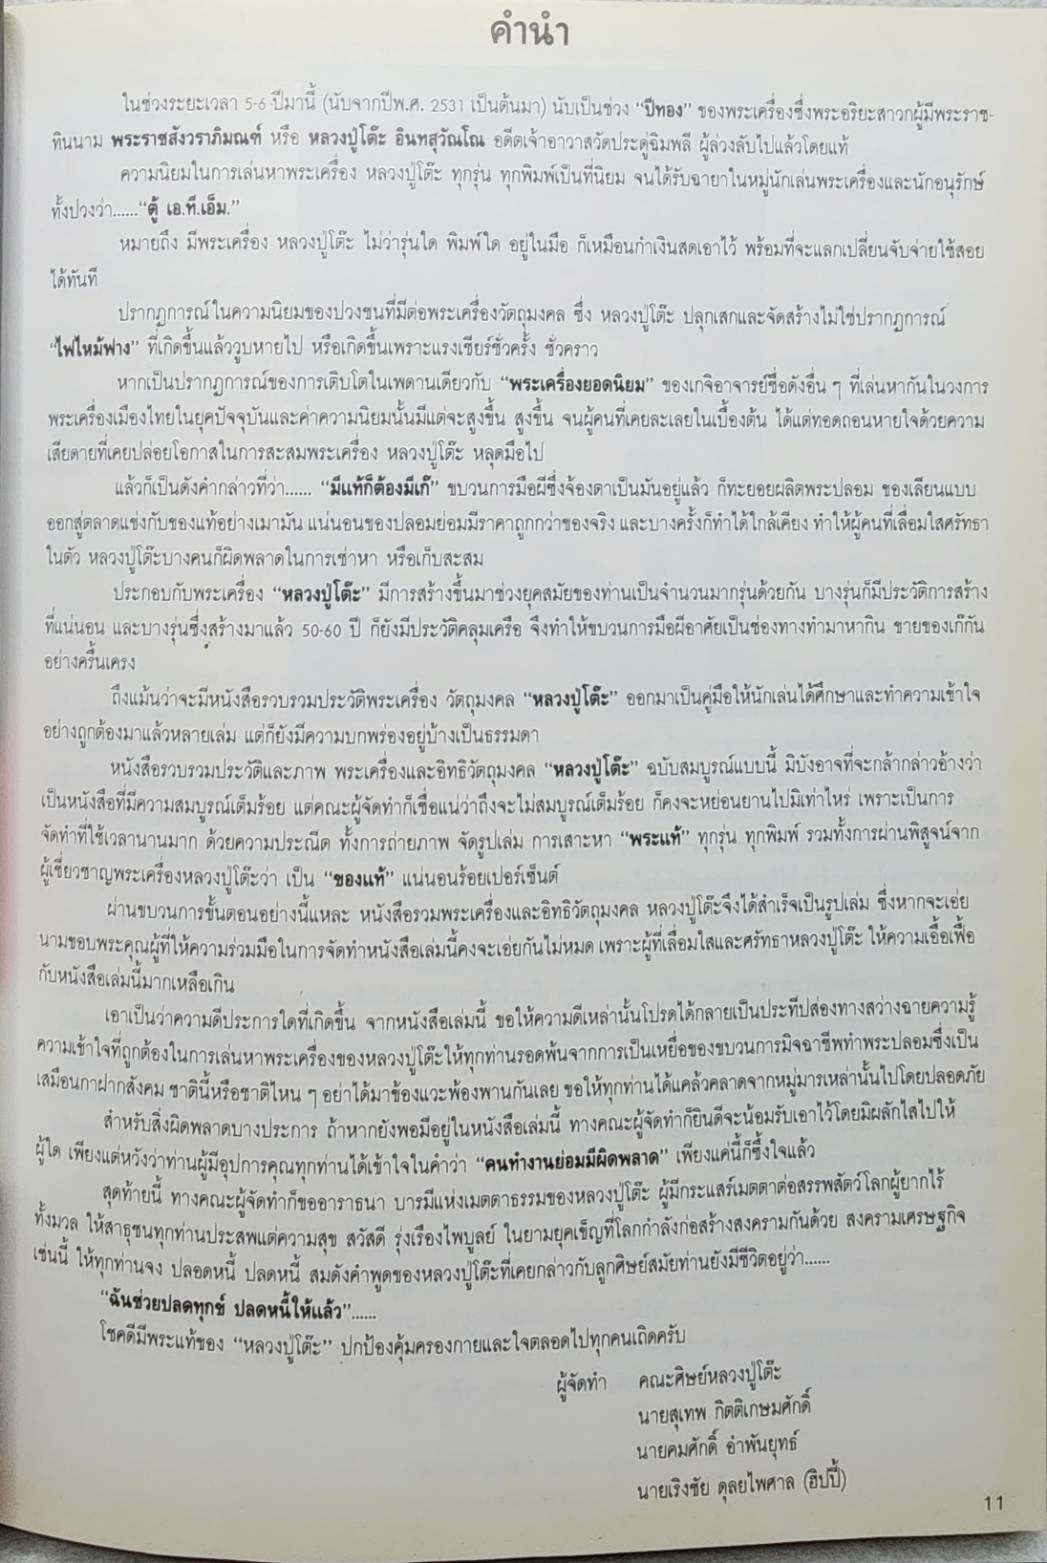 คำนำ
ในช่วงระยะเวลา 5-6 ปีมานี้ (นับจากปีพ.ศ. 2531 เป็นต้นมา) นับเป็นช่วง “ปีทอง” ของพระเครื่องซึ่งพระอริยะสาวกผู้มีพระราช-
ทินนาม พระราชสังวราภิมณฑ์ หรือ หลวงปู่โต๊ะ อินฺทสุวัณโณ อดีตเจ้าอาวาสวัดประดู่ฉิมพลี ผู้ล่วงลับไปแล้วโดยแท้
ความนิยมในการเล่นหาพระเครื่อง หลวงปู่โต๊ะ ทุกรุ่น ทุกพิมพ์เป็นที่นิยม จนได้รับฉายาในหมู่นักเล่นพระเครื่องและนักอนุรักษ์
ทั้งปวงว่า......“ตู้ เอ.ที.เอ็ม.”
หมายถึง มีพระเครื่อง หลวงปู่โต๊ะ ไม่ว่ารุ่นใด พิมพ์ใด อยู่ในมือ ก็เหมือนกำเงินสดเอาไว้ พร้อมที่จะแลกเปลี่ยนจับจ่ายใช้สอย
ได้ทันที
ปรากฏการณ์ในความนิยมของปวงชนที่มีต่อพระเครื่องวัตถุมงคล ซึ่ง หลวงปู่โต๊ะ ปลุกเสกและจัดสร้างไม่ใช่ปรากฏการณ์
“ไฟไหม้ฟาง” ที่เกิดขึ้นแล้ววูบหายไป หรือเกิดขึ้นเพราะแรงเชียร์ชั่วครั้ง ชั่วคราว
หากเป็นปรากฏการณ์ของการเติบโตในเพดานเดียวกับ “พระเครื่องยอดนิยม” ของเกจิอาจารย์ชื่อดังอื่น ๆ ที่เล่นหากันในวงการ
พระเครื่องเมืองไทยในยุคปัจจุบันและค่าความนิยมนั้นมีแต่จะสูงขึ้น สูงขึ้น จนผู้คนที่เคยละเลยในเบื้องต้น ได้แต่ทอดถอนหายใจด้วยความ
เสียดายที่เคยปล่อยโอกาสในการสะสมพระเครื่อง หลวงปู่โต๊ะ หลุดมือไป
แล้วก็เป็นดังคำกล่าวที่ว่า...... “มีแท้ก็ต้องมีเก๊” ขบวนการมือผีซึ่งจ้องตาเป็นมันอยู่แล้ว ก็ทะยอยผลิตพระปลอม ของเลียนแบบ
ออกสู่ตลาดแข่งกับของแท้อย่างเมามัน แน่นอนของปลอมย่อมมีราคาถูกกว่าของจริง และบางครั้งก็ทำได้ใกล้เคียง ทำให้ผู้คนที่เลื่อมใสศรัทธา
ในตัว หลวงปู่โต๊ะบางคนก็ผิดพลาดในการเช่าหา หรือเก็บสะสม
ประกอบกับพระเครื่อง “หลวงปู่โต๊ะ” มีการสร้างขึ้นมาช่วงยุคสมัยของท่านเป็นจำนวนมากรุ่นด้วยกัน บางรุ่นก็มีประวัติการสร้าง
ที่แน่นอน และบางรุ่นซึ่งสร้างมาแล้ว 50-60 ปี ก็ยังมีประวัติคลุมเครือ จึงทำให้ขบวนการมือผีอาศัยเป็นช่องทางทำมาหากิน ขายของเก๊กัน
อย่างครื้นเครง
ถึงแม้นว่าจะมีหนังสือรวบรวมประวัติพระเครื่อง วัตถุมงคล “หลวงปู่โต๊ะ” ออกมาเป็นคู่มือให้นักเล่นได้ศึกษาและทำความเข้าใจ
อย่างถูกต้องมาแล้วหลายเล่ม แต่ก็ยังมีความบกพร่องอยู่บ้างเป็นธรรมดา
หนังสือรวบรวมประวัติและภาพ พระเครื่องและอิทธิวัตถุมงคล “หลวงปู่โต๊ะ” ฉบับสมบูรณ์แบบนี้ มิบังอาจที่จะกล้ากล่าวอ้างว่า
เป็นหนังสือที่มีความสมบูรณ์เต็มร้อย แต่คณะผู้จัดทำก็เชื่อแน่ว่าถึงจะไม่สมบูรณ์เต็มร้อย ก็คงจะหย่อนยานไปมิเท่าไหร่ เพราะเป็นการ
จัดทำที่ใช้เวลานานมาก ด้วยความประณีต ทั้งการถ่ายภาพ จัดรูปเล่ม การเสาะหา “พระแท้” ทุกรุ่น ทุกพิมพ์ รวมทั้งการผ่านพิสูจน์จาก
ผู้เชี่ยวชาญพระเครื่องหลวงปู่โต๊ะว่า เป็น “ของแท้” แน่นอนร้อยเปอร์เซ็นต์
ผ่านขบวนการขั้นตอนอย่างนี้แหละ หนังสือรวมพระเครื่องและอิทธิวัตถุมงคล หลวงปู่โต๊ะจึงได้สำเร็จเป็นรูปเล่ม ซึ่งหากจะเอ่ย
นามขอบพระคุณผู้ที่ให้ความร่วมมือในการจัดทำหนังสือเล่มนี้คงจะเอ่ยกันไม่หมด เพราะผู้ที่เลื่อมใสและศรัทธาหลวงปู่โต๊ะ ให้ความเอื้อเฟื้อ
กับหนังสือเล่มนี้มากเหลือเกิน
เอาเป็นว่าความดีประการใดที่เกิดขึ้น จากหนังสือเล่มนี้ ขอให้ความดีเหล่านั้นโปรดได้กลายเป็นประทีปส่องทางสว่างฉายความรู้
ความเข้าใจที่ถูกต้องในการเล่นหาพระเครื่องของหลวงปู่โต๊ะให้ทุกท่านรอดพ้นจากการเป็นเหยื่อของขบวนการมิจฉาชีพทำพระปลอมซึ่งเป็น
เสมือนกาฝากสังคม ชาตินี้หรือชาติไหน ๆ อย่าได้มาข้องแวะพ้องพานกันเลย ขอให้ทุกท่านได้แคล้วคลาดจากหมู่มารเหล่านั้นไปโดยปลอดภัย
สำหรับสิ่งผิดพลาดบางประการ ถ้าหากยังพอมีอยู่ในหนังสือเล่มนี้ ทางคณะผู้จัดทำก็ยินดีจะน้อมรับเอาไว้โดยมิผลักไสไปให้
ผู้ใด เพียงแต่หวังว่าท่านผู้มีอุปการคุณทุกท่านได้เข้าใจในคำว่า “คนทำงานย่อมมีผิดพลาด” เพียงแค่นี้ก็ซึ้งใจแล้ว
สุดท้ายนี้ ทางคณะผู้จัดทำก็ขออาราธนา บารมีแห่งเมตตาธรรมของหลวงปู่โต๊ะ ผู้มีกระแสร์เมตตาต่อสรรพสัตว์โลกผู้ยากไร้
ทั้งมวล ให้สาธุชนทุกท่านประสพแต่ความสุข สวัสดี รุ่งเรืองไพบูลย์ ในยามยุคเข็ญที่โลกกำลังก่อสร้างสงครามกันด้วย สงครามเศรษฐกิจ
เช่นนี้ ให้ทุกท่านจง ปลอดหนี้ ปลดหนี้ สมดังคำพูดของหลวงปู่โต๊ะที่เคยกล่าวกับลูกศิษย์สมัยท่านยังมีชีวิตอยู่ว่า......
“ฉันช่วยปลดทุกข์ ปลดหนี้ให้แล้ว”......
โชคดีมีพระแท้ของ “หลวงปู่โต๊ะ” ปกป้องคุ้มครองกายและใจตลอดไปทุกคนเถิดครับ
ผู้จัดทำ คณะศิษย์หลวงปู่โต๊ะ
นายสุเทพ กิตติเกษมศักดิ์
นายคมศักดิ์ อำพันยุทธ์
นายเริงชัย ดุลยไพศาล (ฮิปปี้)
11